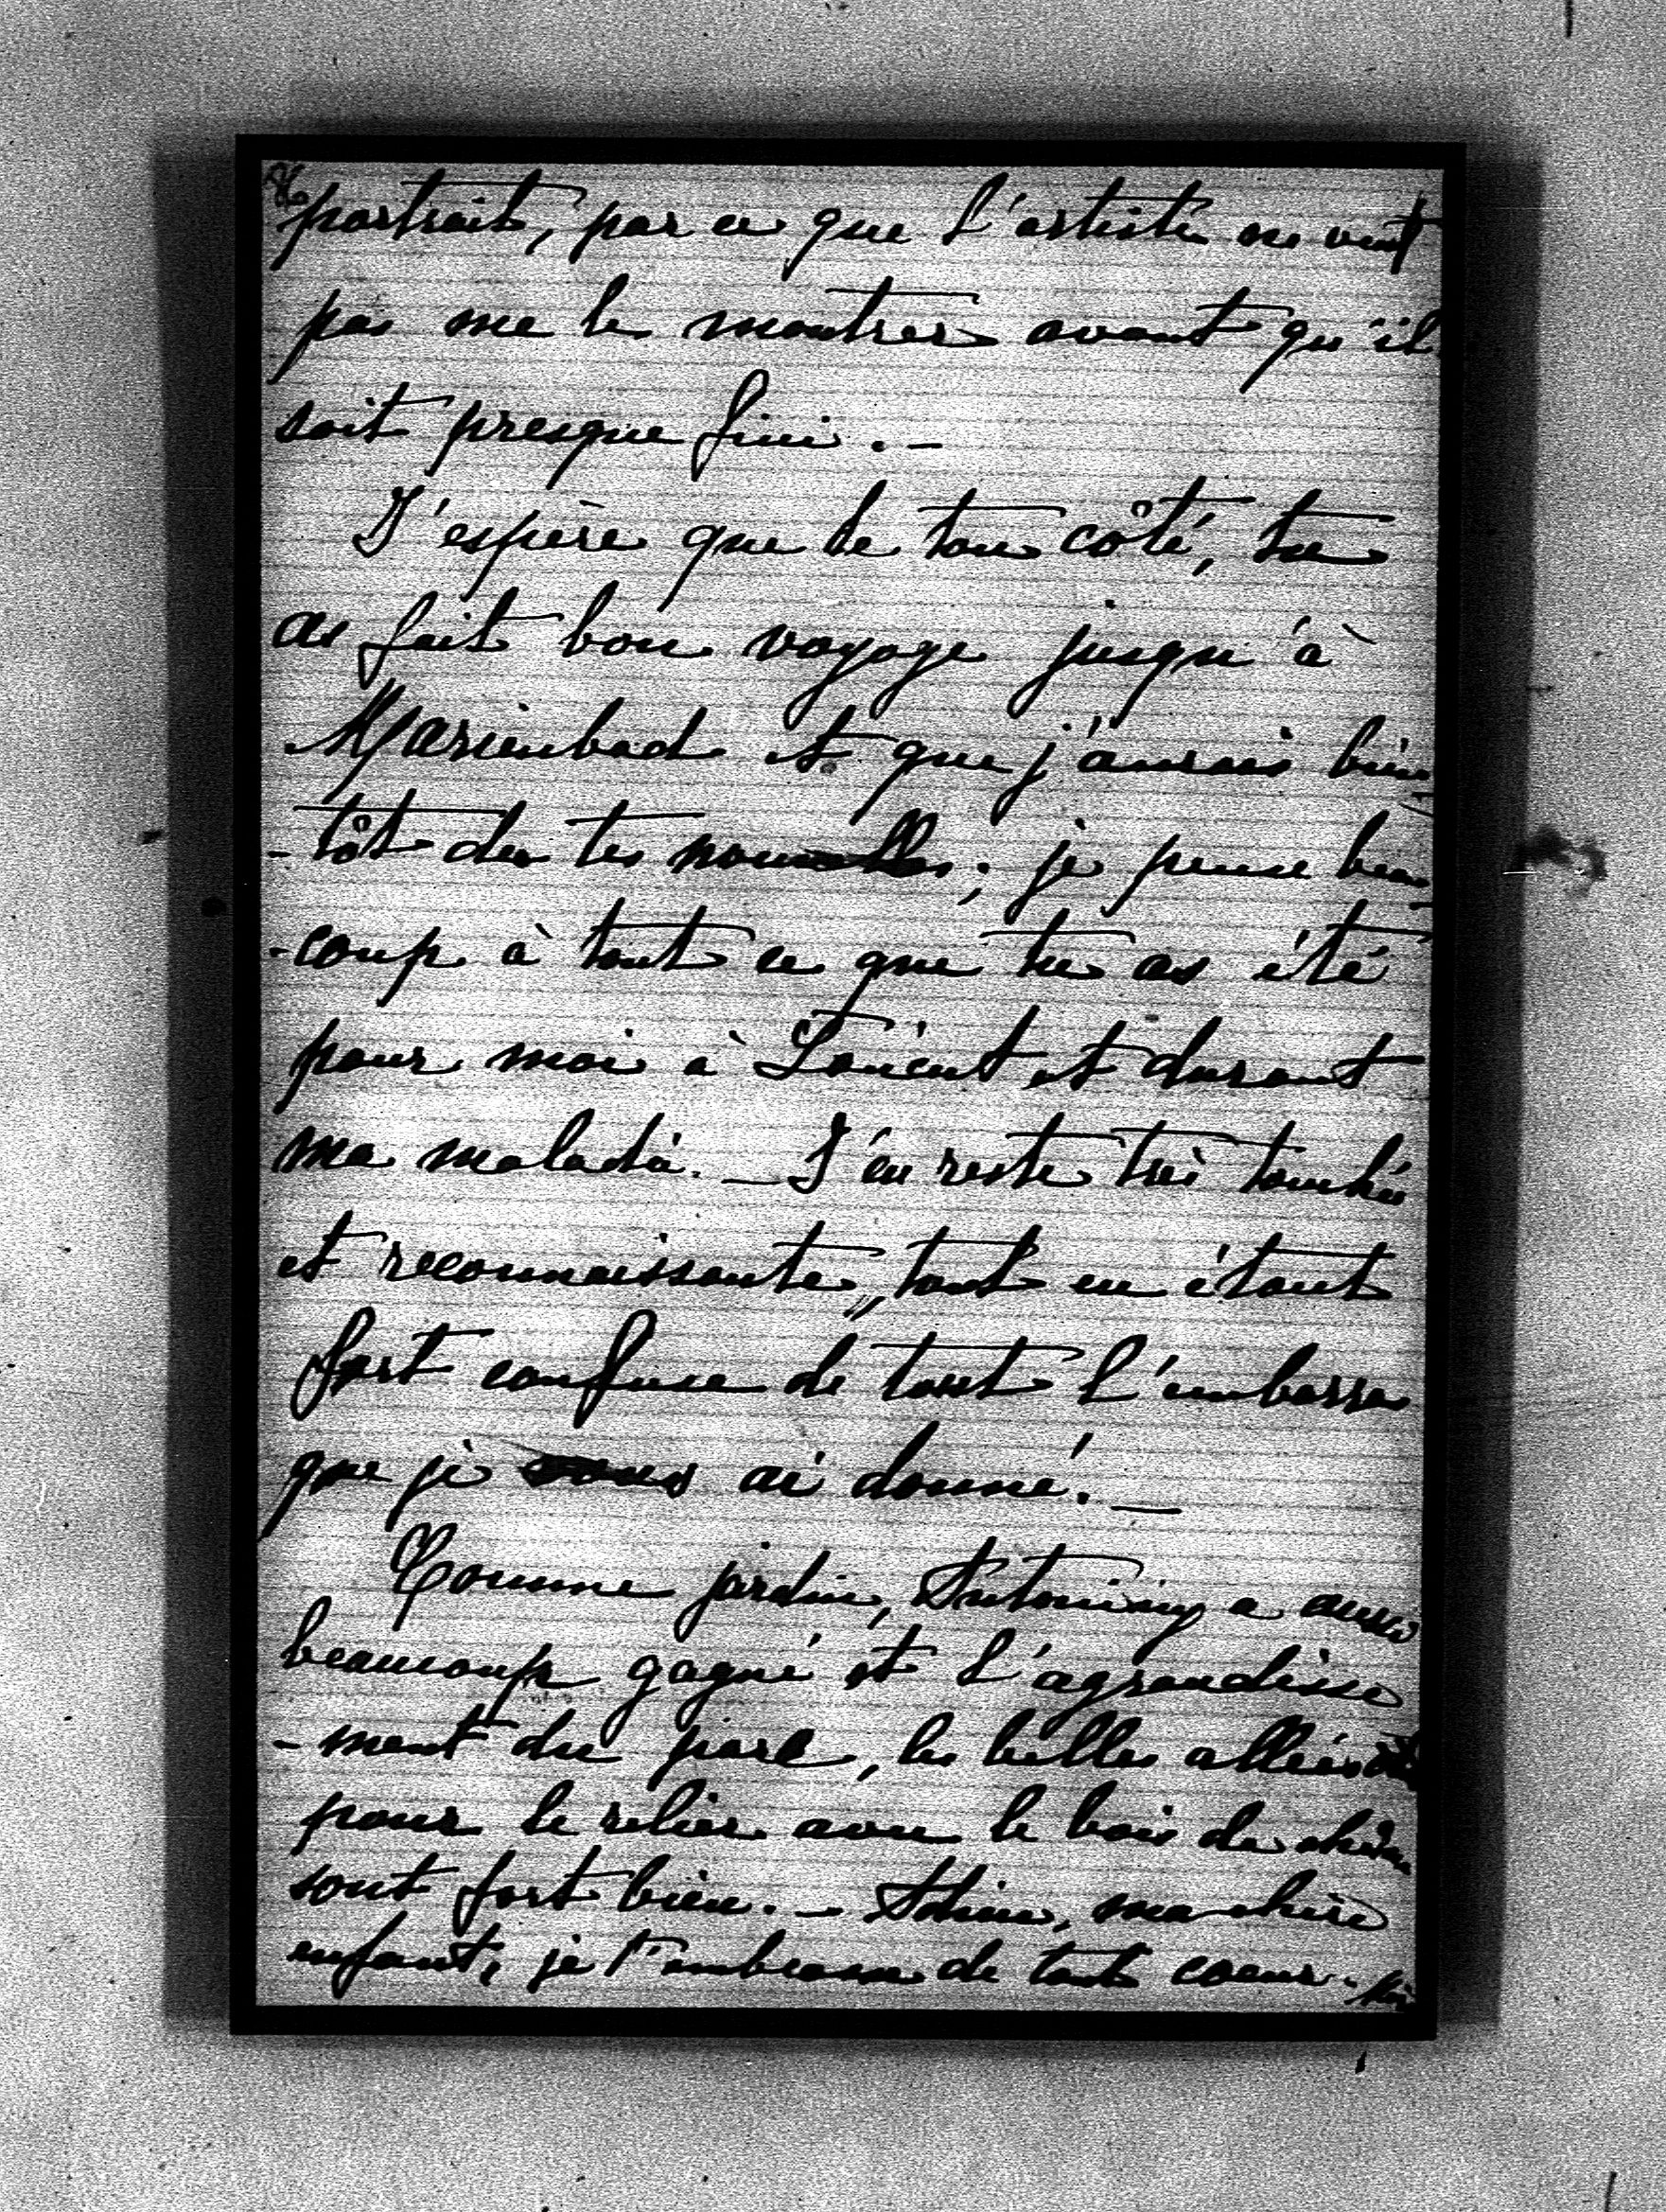 86
portrait, par ce que l'artiste ne veut
pas me le montrer avant qu'il
soit presque fini. —
J'espère que de ton côté, tu
as fait bon voyage jusqu'à
Marienbad et que j'aurais bien
-tôt de tes nouvelles; je pense beau
-coup à tout ce que tu as été
pour moi à Łańcut et durant
ma maladie. — J'en reste très touchée
et reconnaissante, tout en étant
fort confuse de tout l'embarras
que je vous ai donné. —
Comme jardin, Antoniny a aussi
beaucoup gagné et l'agrandisse
-ment du parc, les belles allées
pour le relier avec le bois de chêne
sont fort bien. — Adieu, ma chère
enfant, je t'embrasse de tout coeur.